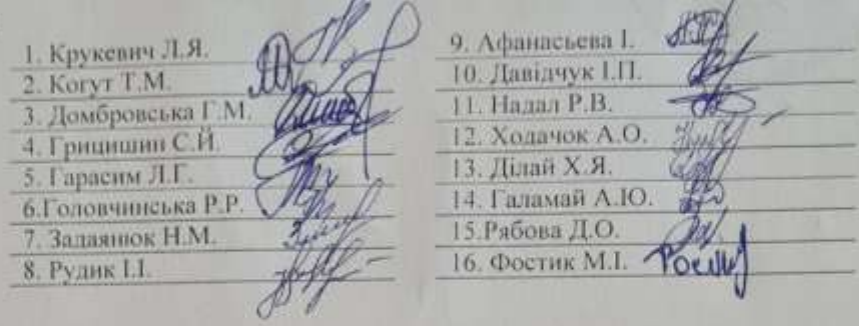 1. Крукевич Л.Я.
2. Когут Т.М.
3. Домбровська Г.М.
4. Грицишин С.Й.
5. Гарасим Л.Г.
6.Головчинська Р.Р.
7. Задаянюк Н.М.
8. Рудик І.І.
9. Афанасьева І.
10. Давідчук І.П.
11. Надал Р.В.
12. Ходачок А.О.
13. Ділай Х.Я.
14. Галамай А.Ю.
15.Рябова Д.О.
16. Фостик М.І.